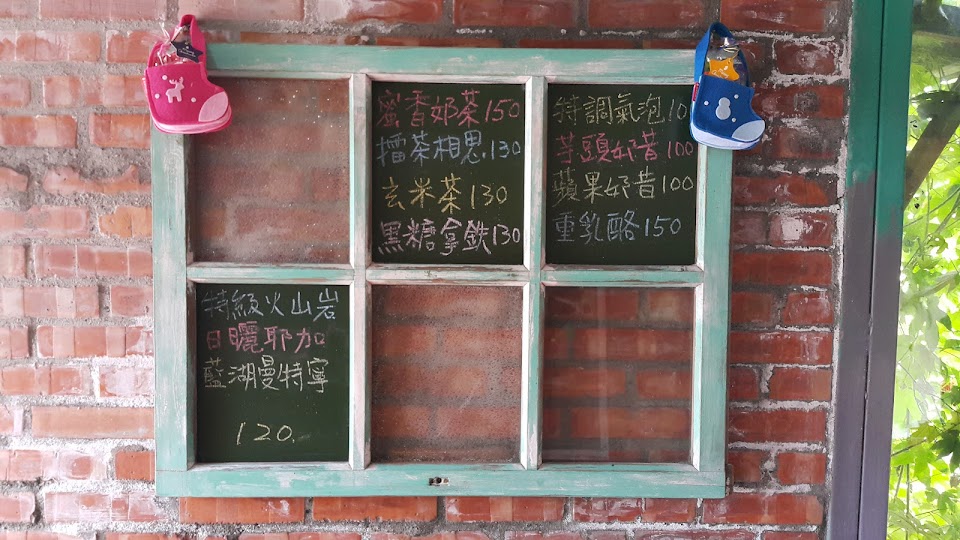 蜜香奶茶150
擂茶相思.130
玄米茶130
黑糖拿鉄130
特調氣泡10
芋頭奶昔100
蘋果奶昔100
重乳酪150
特級火山岩
日曬耶加
藍湖曼特寧
120.